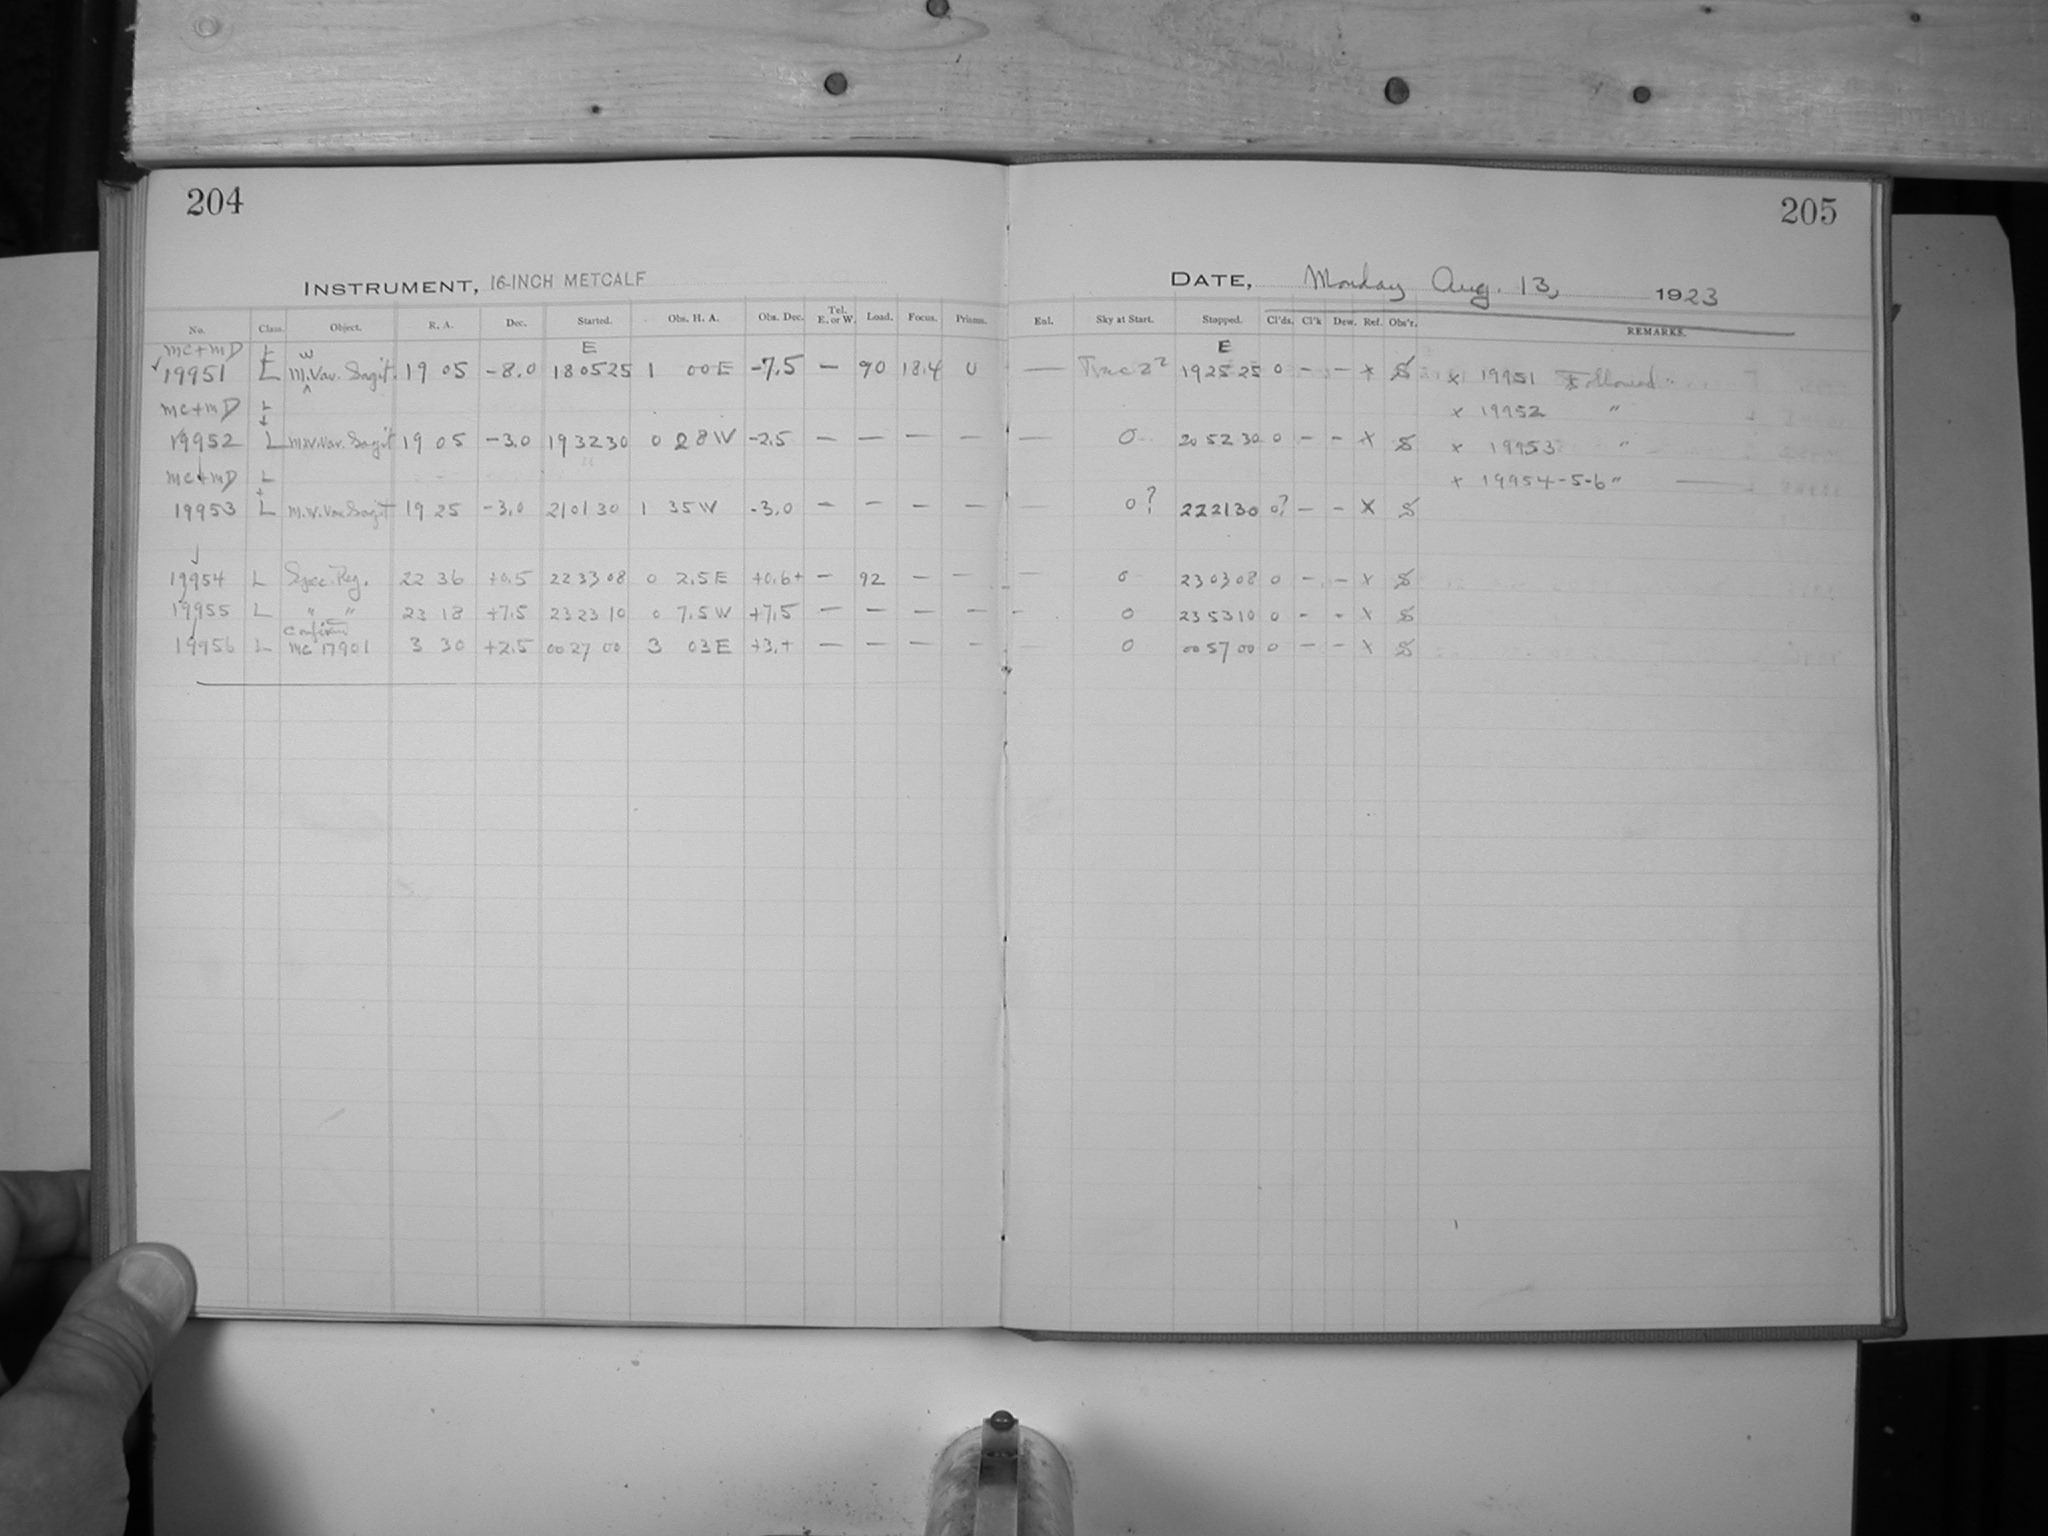 204
205
INSTRUMENT, 16-INCH METCALF
DATE, Monday Aug. 13, 1923
No. Class. Object. R. A. Dec. Started. Obs. H. A. Obs. Dec. Tel. E. or W. Load. Focus. Prisms. Enl. Sky at Start. Stopped. Cl'ds. Cl'k Dew. Ref. Obs'r. REMARKS.
mc+mD L W E E
19951 L M.Var. Sagit. 19 05 -8.0 18 05 25 1 00 E -7.5 — 90 18.4 U — 19 25 25 0 - - x S x 19951 Followed
mc+mD L x 19952 "
19952 L M.W.Var. Sagit 19 05 -3.0 19 32 30 0 28 W -2.5 — — — — — 0 20 52 30 0 - - x S x 19953 "
mc+mD L x 19954-5-6 "
19953 L M.W. Var Sagit 19 25 -3.0 21 01 30 1 35 W -3.0 — — — — — 0? 22 21 30 0? - - x S
19954 L Spec. Reg. 22 36 +0.5 22 33 08 0 2.5 E +0.6+ — 92 — — — 0 23 03 08 0 - - x S
19955 L " " 23 18 +7.5 23 23 10 0 7.5 W +7.5 — — — — - 0 23 53 10 0 - - x S
Confirm
19956 L MC 17901 3 30 +2.5 00 27 00 3 03 E +3.+ — — — — — 0 00 57 00 0 - - x S